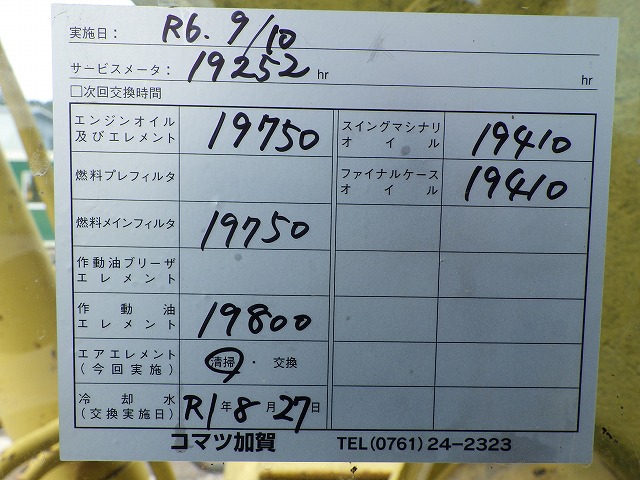 実施日： R6. 9/10
サービスメータ： 19252 hr hr
□次回交換時間
エンジンオイル及びエレメント 19750
燃料プレフィルタ
燃料メインフィルタ 19750
作動油ブリーザエレメント
作動油エレメント 19800
エアエレメント（今回実施） 清掃・交換
冷却水（交換実施日） R1年8月27日
スイングマシナリオイル 19410
ファイナルケースオイル 19410
コマツ加賀 TEL(0761)24-2323